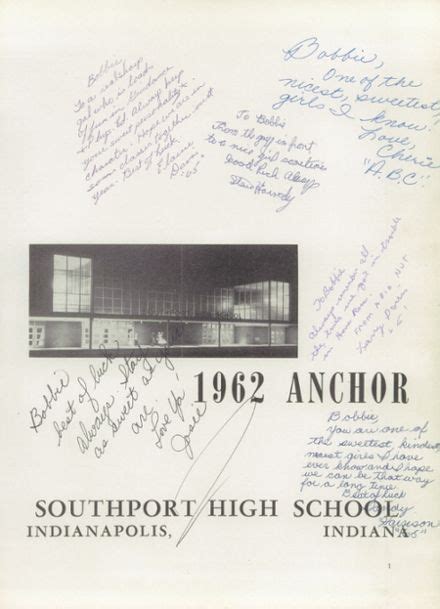 Bobbie
To a real sharp
gal who is loads
of fun in Guidance
at hyp. Ed. Always keep
your sweet personality &
character. Hope we are in
some classes together next
year. Best of luck
Elaine
Davis
"65"
To Bobbie
From thy guy in front
to a nice girl
Good luck Always
Steve
Bobbie,
One of the
nicest, sweetest,
girls I know!
Love,
Cherie
"A.B.C."
To Bobbie
Always remember all
the times we got in trouble
in Home Room
From A O I O NUT
Larry
"65"
Bobbie
best of luck
Always. Stay
as sweet as you
are
Love Ya!
Josie
1962 ANCHOR
Bobbie,
You are one of
the sweetest, kindest,
nicest girls I have
ever know and I hope
we can be that way
for a long time
Best of luck
"65"
SOUTHPORT HIGH SCHOOL
INDIANAPOLIS, INDIANA
1